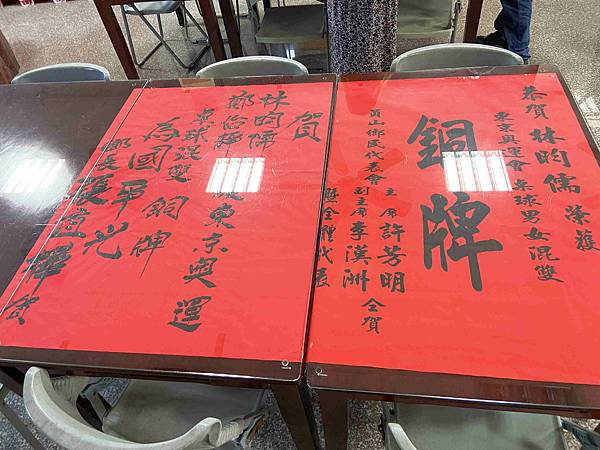 恭賀 林昀儒 榮獲
東京奧運會桌球男女混雙
銅牌
主席 許芳明
員山鄉民代表會
副主席 李漢洲 仝賀
暨全體代表
賀
林昀儒
鄭怡靜 獲東京奧運
桌球混雙 銅牌
為國爭光
鄉長 張宜樺 賀